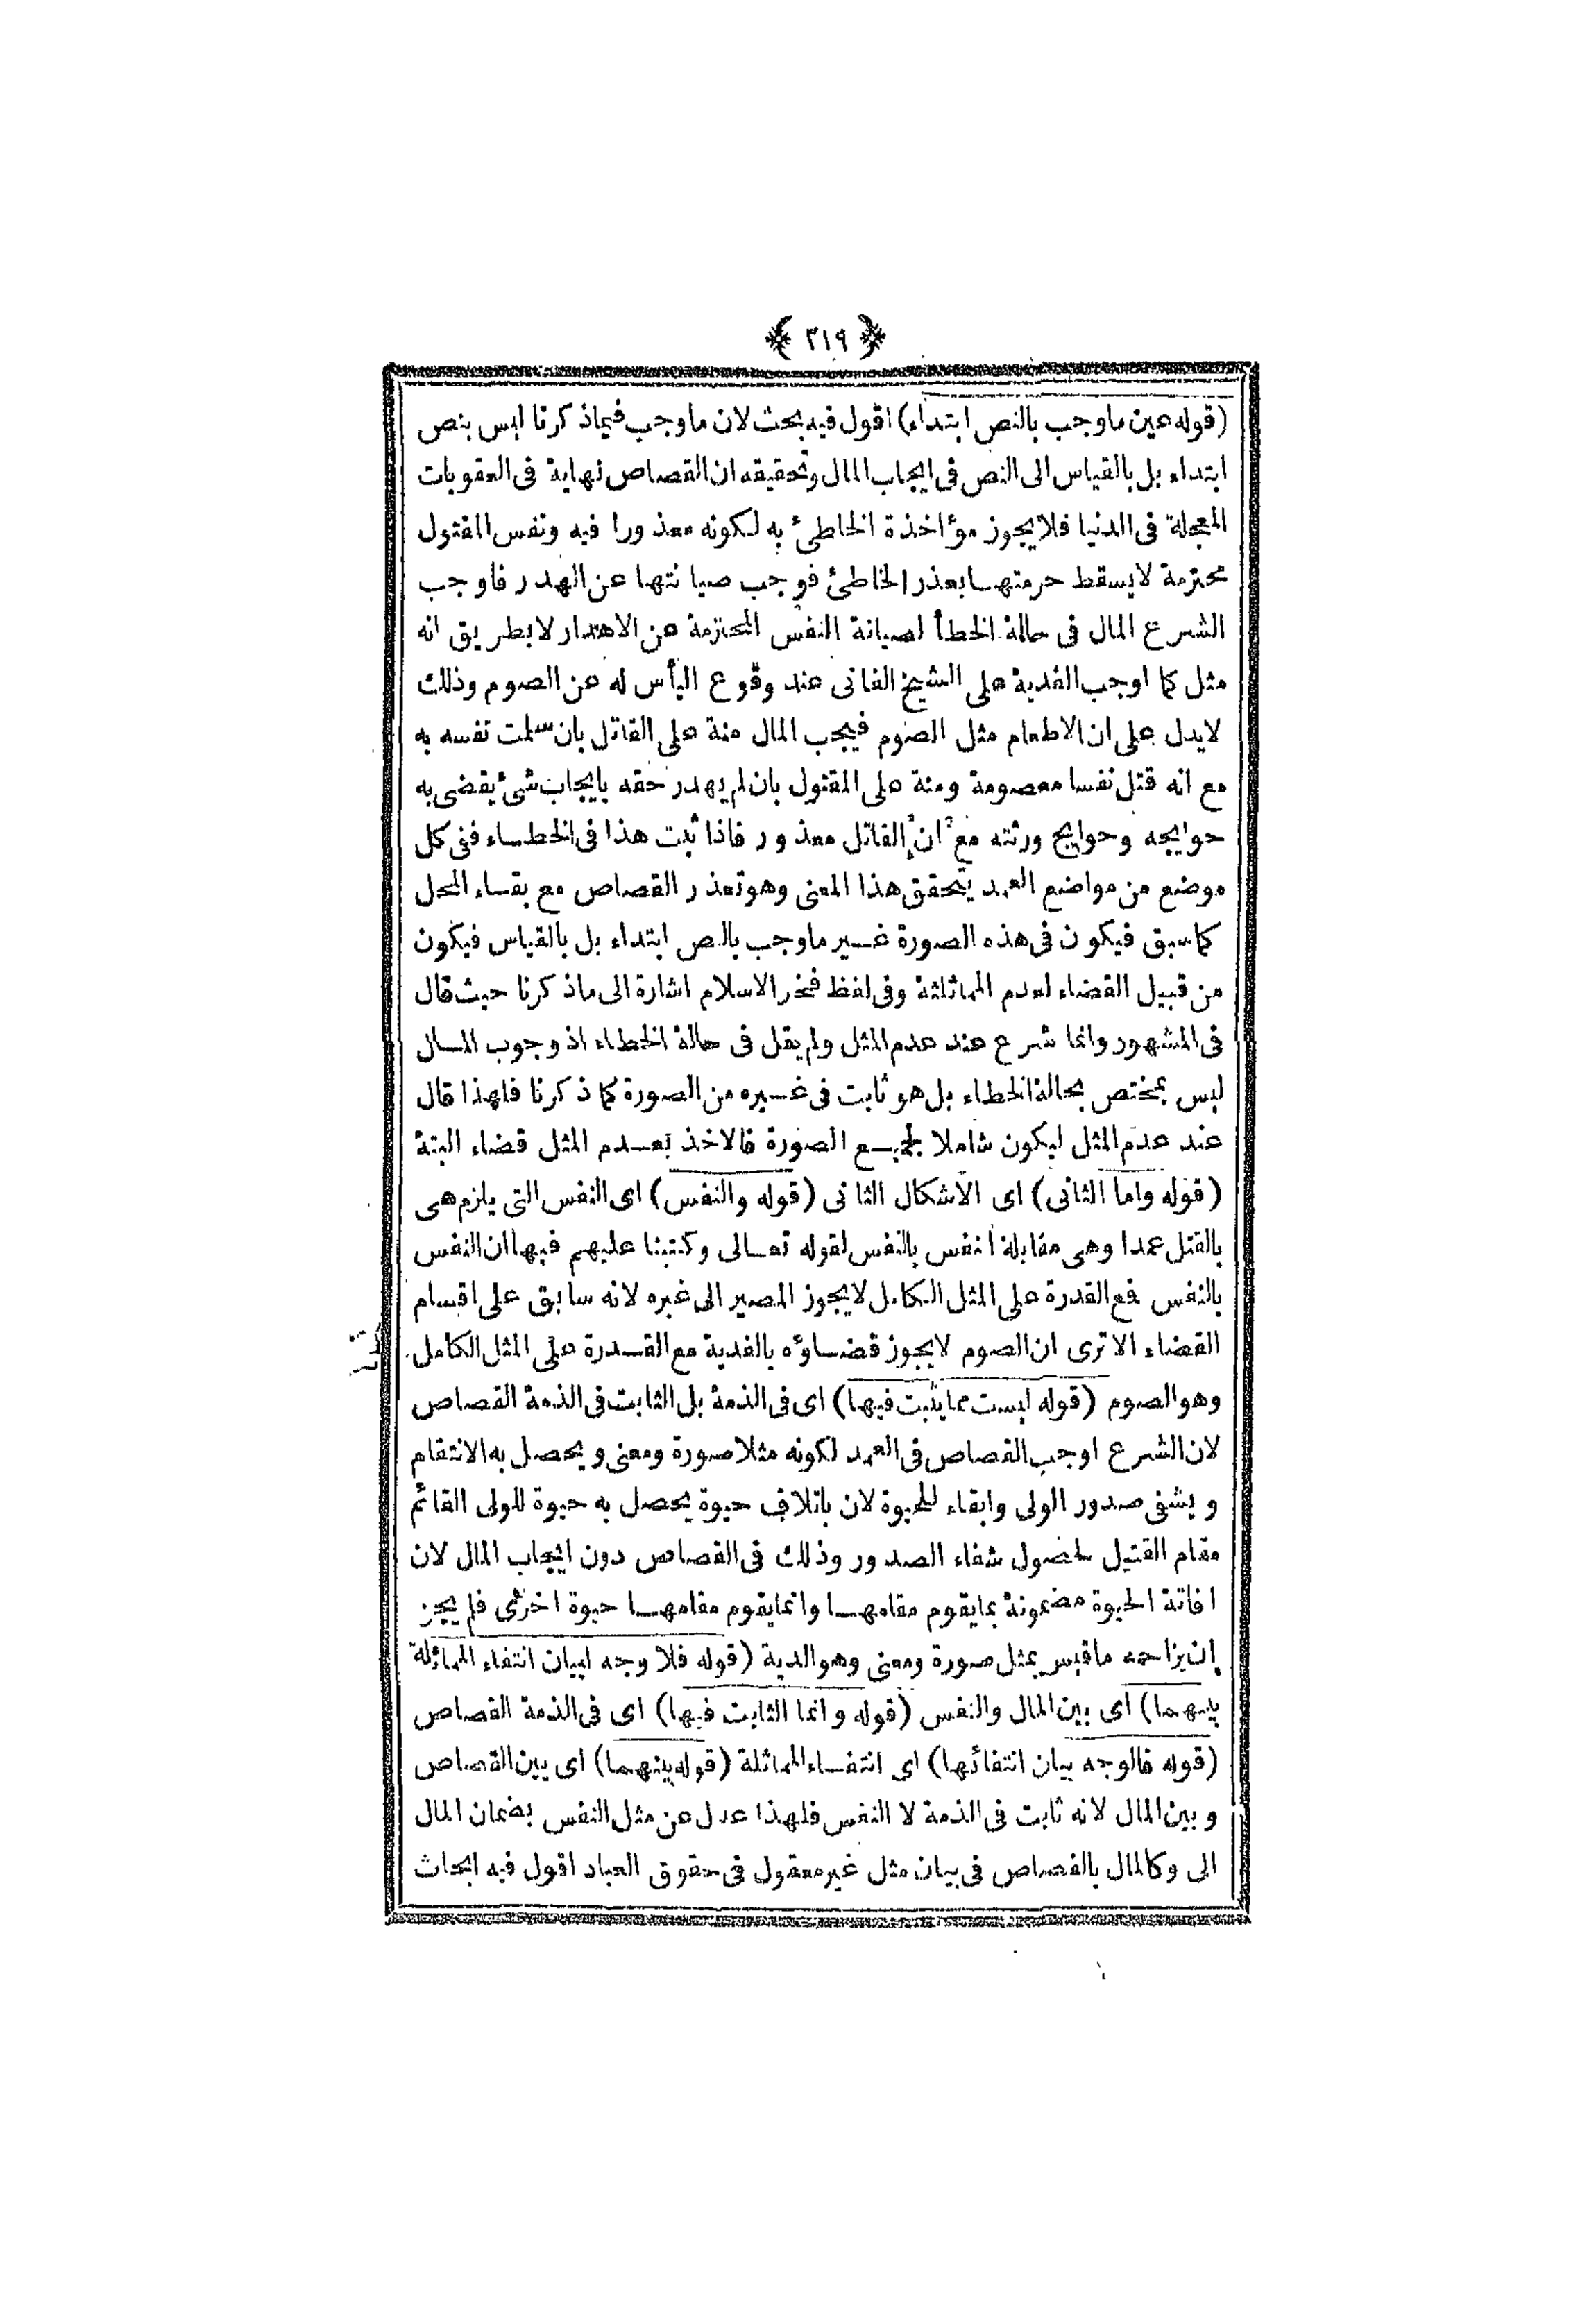 ﴿ ٣١٩ ﴾
(قوله عين ماوجب بالنص ابتداء) اقول فيه بحث لان ماوجب فيماذكرنا ليس بنص
ابتداء بل بالقياس الى النص فى ايجاب المال وتحقيقه ان القصاص نهاية فى العقوبات
المعجلة فى الدنيا فلا يجوز مؤاخذة الخاطئ به لكونه معذورا فيه ونفس المقتول
محترمة لايسقط حرمتها بعذر الخاطئ فوجب صيانتها عن الهدر فاوجب
الشرع المال فى حالة الخطأ لصيانة النفس المحترمة عن الاهدار لابطريق انه
مثل كما اوجب الفدية على الشيخ الفانى عند وقوع اليأس له عن الصوم وذلك
لايدل على ان الاطعام مثل الصوم فيجب المال منة على القاتل بان سلمت نفسه به
مع انه قتل نفسا معصومة ومنة على المقتول بان لم يهدر حقه بايجاب شئ يقضى به
حوايجه وحوايج ورثته مع ان القاتل معذور فاذا ثبت هذا فى الخطاء ففى كل
موضع من مواضع العمد يتحقق هذا المعنى وهو تعذر القصاص مع بقاء المحل
كماسبق فيكون فى هذه الصورة غير ماوجب بالنص ابتداء بل بالقياس فيكون
من قبيل القضاء لعدم المماثلثة وفى لفظ فخر الاسلام اشارة الى ماذكرنا حيث قال
فى المشهور وانما شرع عند عدم المثل ولم يقل فى حالة الخطاء اذ وجوب المال
ليس بمختص بحالة الخطاء بل هو ثابت فى غيره من الصورة كما ذكرنا فلهذا قال
عند عدم المثل ليكون شاملا لجميع الصورة فالاخذ بعدم المثل قضاء البتة
(قوله واما الثانى) اى الاشكال الثانى (قوله والنفس) اى النفس التى يلزم هى
بالقتل عمدا وهى مقابلة انفس بالنفس لقوله تعالى وكتبنا عليهم فيها ان النفس
بالنفس فمع القدرة على المثل الكامل لايجوز المصير الى غيره لانه سابق على اقسام
القضاء الا ترى ان الصوم لايجوز قضاؤه بالفدية مع القدرة على المثل الكامل
وهو الصوم (قوله ليست مما يثبت فيها) اى فى الذمة بل الثابت فى الذمة القصاص
لان الشرع اوجب القصاص فى العمد لكونه مثلا صورة ومعنى ويحصل به الانتقام
ويشفى صدور الولى وابقاء للحيوة لان باتلاف حيوة يحصل به حيوة للولى القائم
مقام القتيل لحصول شفاء الصدور وذلك فى القصاص دون ايجاب المال لان
افاتة الحيوة مضمونة بمايقوم مقامها وانمايقوم مقامها حيوة اخرى فلم يجز
ان يزاحمه ماقيس بمثل صورة ومعنى وهو الدية (قوله فلا وجه لبيان انتفاء المماثلة
بينهما) اى بين المال والنفس (قوله وانما الثابت فيها) اى فى الذمة القصاص
(قوله فالوجه بيان انتفائها) اى انتفاء المماثلة (قوله بينهما) اى بين القصاص
وبين المال لانه ثابت فى الذمة لا النفس فلهذا عدل عن مثل النفس بضمان المال
الى وكالمال بالقصاص فى بيان مثل غير معقول فى حقوق العباد اقول فيه ابحاث